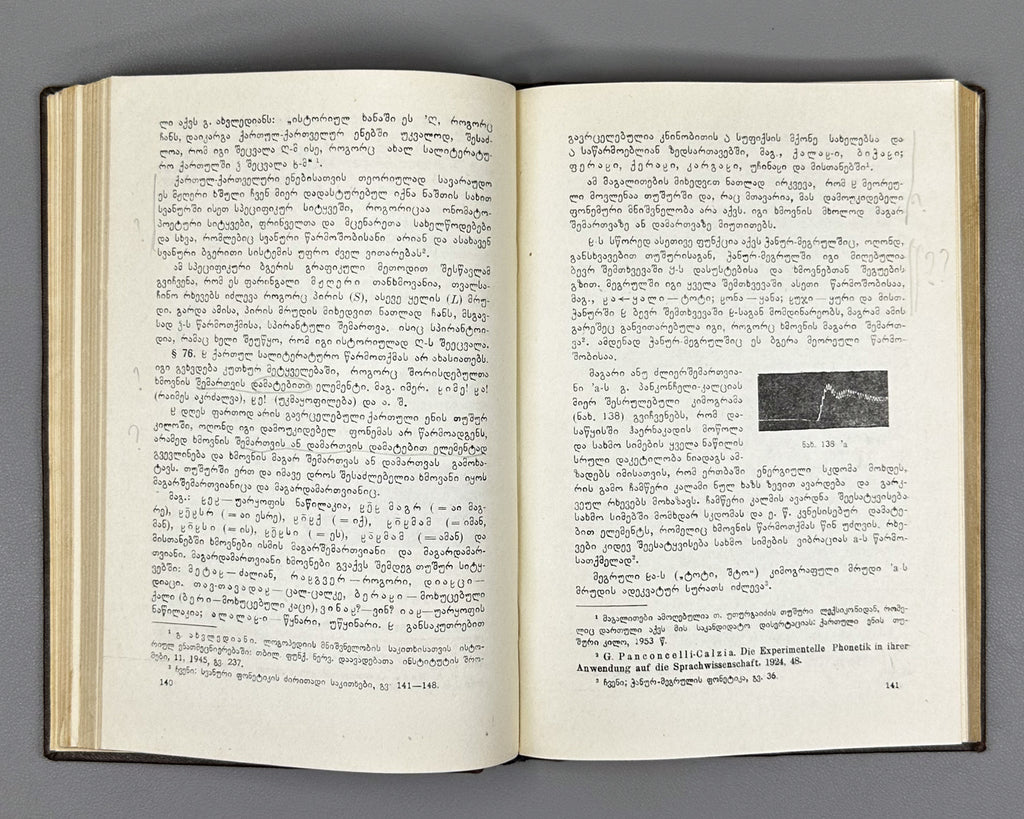 ლი აქვს გ. ახვლედიანს: „ისტორიულ ხანაში ეს ’Ღ, როგორც
ჩანს, დაიკარგა ქართულ-ქართველურ ენებში უკვალოდ, შესაძ-
ლოა, რომ იგი შეცვალა Ღ-მ ისე, როგორც ახალ სალიტერატუ-
რო ქართულში ჴ შეცვალა ხ-მ“ ¹.
ქართულ-ქართველური ენებისათვის თეორიულად სავარაუდო
ეს მჟღერი ხშული ჩვენ მიერ დადასტურებულ იქნა ნაშთის სახით
სვანურში ისეთ სპეციფიკურ სიტყვებში, როგორიცაა ონომატო-
პოეტური სიტყვები, ფრინველთა და მცენარეთა სახელწოდებები
და სხვა, რომლებიც სვანური წარმოშობისანი არიან და ასახავენ
სვანური ბგერითი სისტემის უფრო ძველ ვითარებას².
ამ სპეციფიკური ბგერის გრაფიკული მეთოდით შესწავლამ
გვიჩვენა, რომ ეს ფარინგალი მჟღერი თანხმოვანია, თვალსა-
ჩინო რხევებს იძლევა როგორც პირის (S), ასევე ყელის (L) მრუ-
დი. გარდა ამისა, პირის მრუდის მიხედვით ნათლად ჩანს, მსგავ-
სად ჴ-ს წარმოთქმისა, სპირანტული შემართვა. ისიც სპირანტოი-
დია, რამაც ხელი შეუწყო, რომ იგი ისტორიულად Ღ-ს შეეცვალა.
§ 76. ჸ ქართულ სალიტერატურო წარმოთქმას არ ახასიათებს.
იგი გვხვდება კუთხურ მეტყველებაში, როგორც შორისდებულთა
ხმოვნის შემართვის დამატებითი ელემენტი. მაგ. იმერ. ჸიმე! ჸა!
(რაიმეს აკრძალვა), ჸე! (უკმაყოფილება) და ა. შ.
ჸ დღეს ფართოდ არის გავრცელებული ქართული ენის თუშურ
კილოში, ოღონდ იგი დამოუკიდებელ ფონემას არ წარმოადგენს,
არამედ ხმოვნის შემართვის ან დამართვის დამატებით ელემენტად
გვევლინება და ხმოვნის მაგარ შემართვას ან დამართვას გამოხა-
ტავს. თუშურში ერთ და იმავე დროს შესაძლებელია ხმოვანი იყოს
მაგარშემართვიანიცა და მაგარდამართვიანიც.
მაგ.: ჸეჸ—უარყოფის ნაწილაკია, მაგრ (=აი მაგ-
რე), (=აი ესრე), (=იქ), (=იმან,
მან), (=ის), (=ეს), (=ამან) და
მისთანებში ხმოვნები ისმის მაგარშემართვიანი და მაგარდამარ-
თვიანი. მაგარდამართვიანი ხმოვნები გვაქვს შემდეგ თუშურ სიტყ-
ვებში: მეტაჸ—ძალიან, რაჲგვერ—როგორი, დიაჸი—
დიაცი. თავ-თავადაჸ—ცალ-ცალკე, ბერაჸი—მოხუცებული
ქალი (ბერი—მოხუცებული კაცი), ვინაჸ?—ვინ? იაჸ—უარყოფის
ნაწილაკია; ალალაჸი—წყნარი, უწყინარი. ჸ განსაკუთრებით
¹ გ. ახვლედიანი. ლოგოპედიის მნიშვნელობის საკითხისათვის ისტო-
რიულ ენათმეცნიერებაში: თბილ. ფუნქ. ნერვ. დაავადებათა ინსტიტუტის შრო-
მები, 11, 1945, გვ. 237.
² ჩვენი: სვანური ფონეტიკის ძირითადი საკითხები, გვ. 141—148.
140
გავრცელებულია კნინობითის ა სუფიქსის მქონე სახელებსა და
ა საწარმოებლიან ზედსართავებში, მაგ., ქალაჸი, ბიჭაჸი;
ფერაჸი, ქერაჸი, კარგაჸი, უჩინაჸი და მისთანებში¹.
ამ მაგალითების მიხედვით ნათლად ირკვევა, რომ ჸ მეორეუ-
ლი მოვლენაა თუშურში და, რაც მთავარია, მას დამოუკიდებელი
ფონემური მნიშვნელობა არ აქვს. იგი ხმოვნის მხოლოდ მაგარ
შემართვაზე ან დამართვაზე მიუთითებს.
ჸ-ს სწორედ ასეთივე ფუნქცია აქვს ჭანურ-მეგრულშიც, ოღონდ,
განსხვავებით თუშურისაგან, ჭანურ-მეგრულში იგი მიღებულია
ბევრ შემთხვევაში ყ-ს დასუსტებისა და ხმოვნებთან შეგუების
გზით. მეგრულში იგი ყველა შემთხვევაში ასეთი წარმოშობისაა,
მაგ., ჸა←ყალი—ტოტი; ჸონა—ყანა; ჸუჯი—ყური და მისთ.
ჭანურში ჸ ბევრ შემთხვევაში ჸ-საგან მომდინარეობს, მაგრამ ამის
გარეშეც განვითარებულა იგი, როგორც ხმოვნის მაგარი შემართ-
ვა². ამდენად ჭანურ-მეგრულშიც ეს ბგერა მეორეული წარმო-
შობისაა.
მაგარი ანუ ძლიერშემართვია-
ნი ’a-ს გ. პანკონჩელი-კალციას
მიერ შესრულებული კიმოგრამა
(ნახ. 138) გვიჩვენებს, რომ და-
საწყისში ჰაერნაკადის მოწოლა
და სახმო სიმების ყველა ნაწილის
სრული დაკეტილობა ნიადაგს ამ-
ნახ. 138 ’a
ზადებს იმისათვის, რომ ერთბაში ენერგიული სკდომა მოხდეს,
რის გამო ჩამწერი კალამი ნულ ხაზს ზევით ავარდება და გარკ-
ვეულ რხევებს მოხაზავს. ჩამწერი კალმის ავარდნა შეესატყვისება
სახმო სიმებში მომხდარ სკდომას და ე. წ. კვნესისებურ დამატე-
ბით ელემენტს, რომელიც ხმოვნის წარმოთქმას წინ უძღვის. რხე-
ვები კიდევ შეესატყვისება სახმო სიმების ვიბრაციას a-ს წარმო-
სათქმელად².
მეგრული ჸა-ს („ტოტი, შტო“) კიმოგრაფული მრუდი ’a-ს
მრუდის ადეკვატურ სურათს იძლევა³.
¹ მაგალითები ამოღებულია თ. უთურგაიძის თუშური ლექსიკონიდან, რომე-
ლიც დართული აქვს მის საკანდიდატო დისერტაციას: ქართული ენის თუ-
შური კილო, 1953 წ.
² G. Panconcelli-Calzia. Die Experimentelle Phonetik in ihrer
Anwendung auf die Sprachwissenschaft. 1924, 48.
³ ჩვენი; ჭანურ-მეგრულის ფონეტიკა, გვ. 36.
141